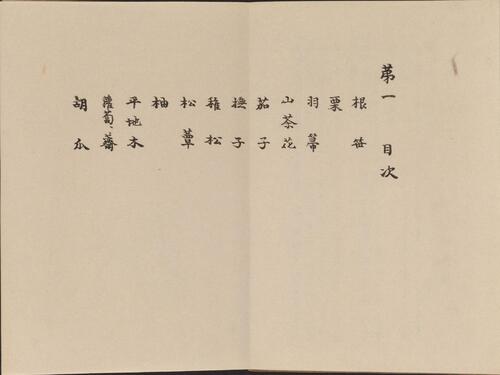 第一 目次
根笹
栗
羽箒
山茶花
茄子
撫子
稚松
松蕈
柚
平地木
蘿蔔、薔
胡瓜